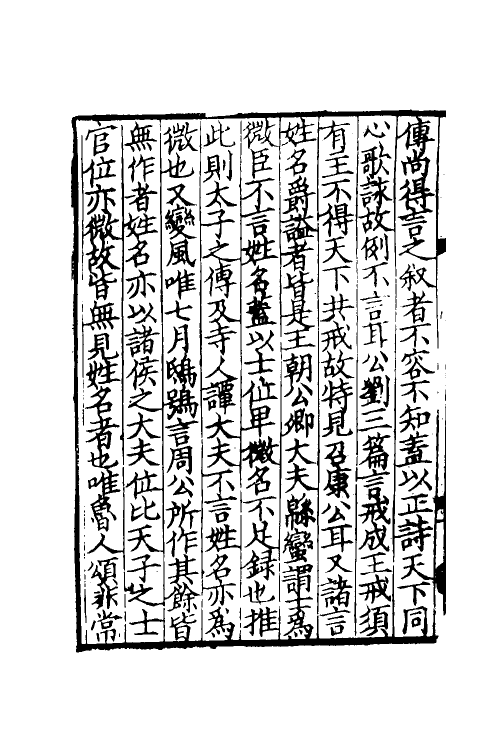 傳尚得言之叙者不容不知蓋以正詩天下同
心歌詠故例不言耳公劉三篇言戒成王戒須
有王不得天下共戒故特見召康公耳又諸言
姓名爵謚者皆是王朝公卿大夫緜蠻謂士為
微臣不言姓名蓋以士位卑微名不足録也推
此則太子之傅及寺人譚大夫不言姓名亦為
微也又變風唯七月鴟鴞言周公所作其餘皆
無作者姓名亦以諸侯之大夫位比天子之士
官位亦微故皆無見姓名者也唯魯人頌非常